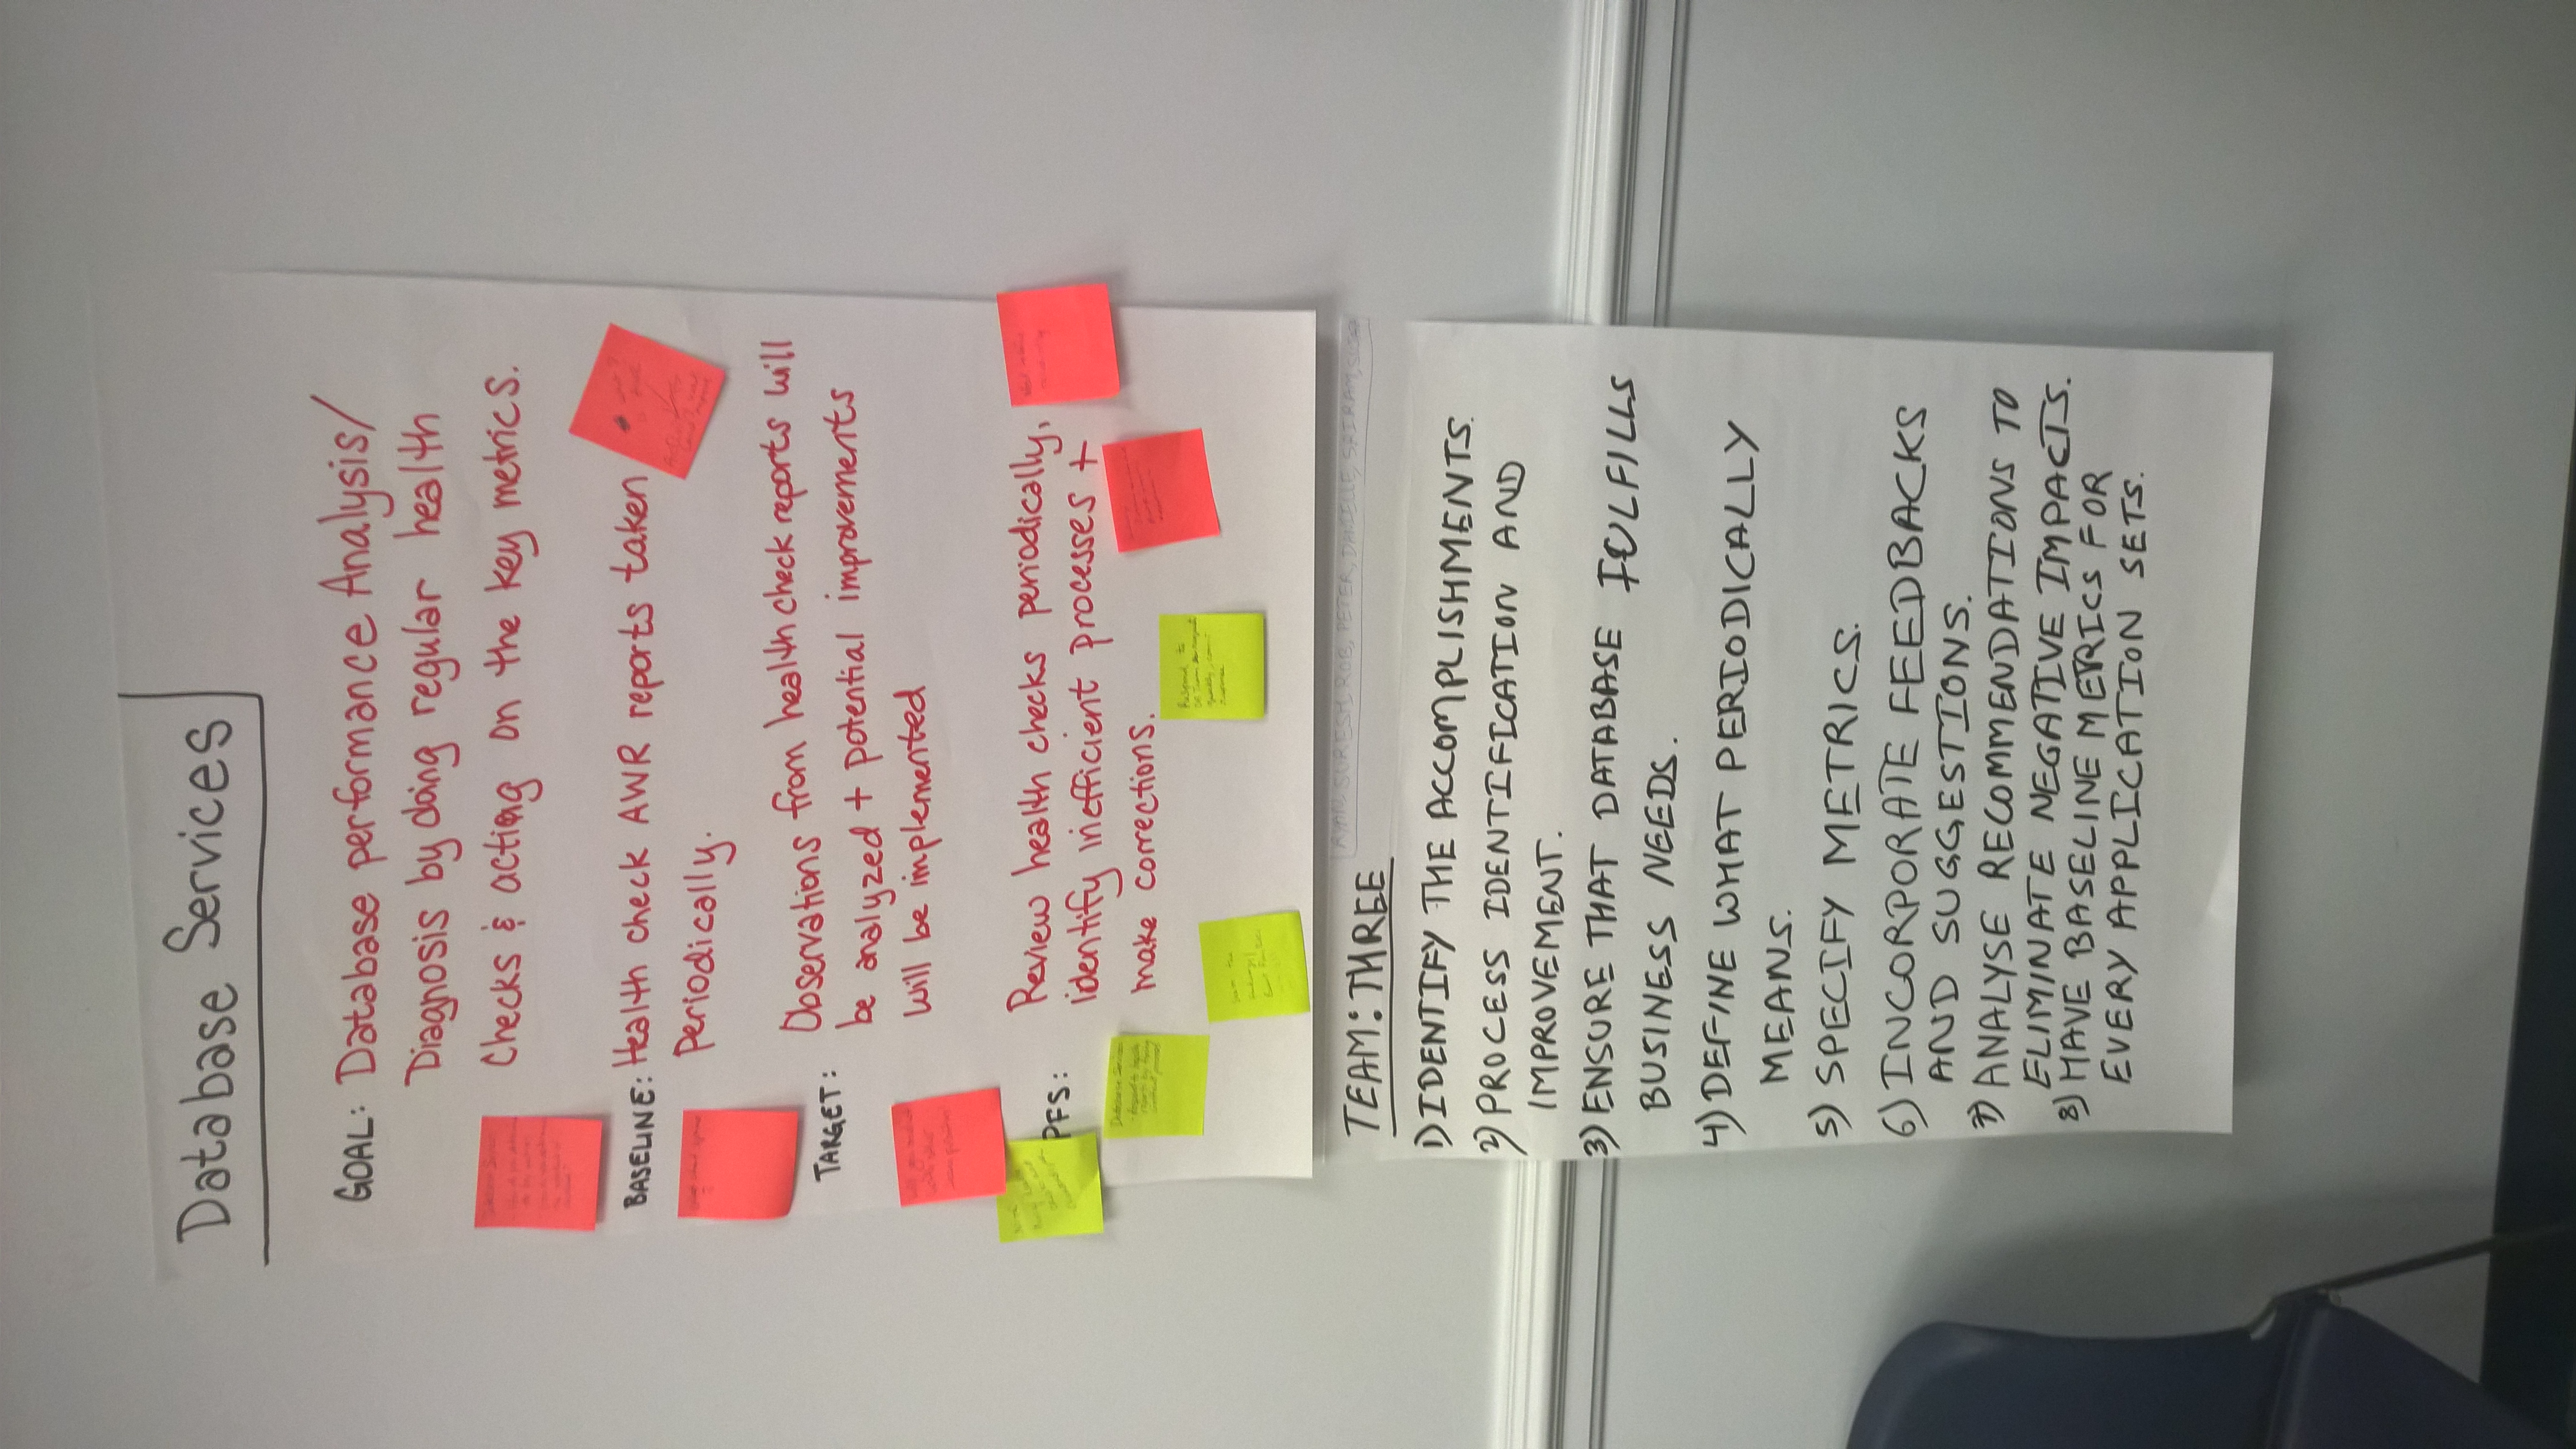 Database Services
GOAL: Database performance Analysis/
Diagnosis by doing regular health
Checks & acting on the key metrics.
BASELINE: Health check AWR reports taken
Periodically.
TARGET: Observations from health check reports will
be analyzed + potential improvements
will be implemented
PFS: Review health checks periodically,
identify inefficient processes +
make corrections.
Respond to
TEAM: THREE
SURESH, ROB, PETER, DANIELLE, SAIRAM,
1) IDENTIFY THE ACCOMPLISHMENTS.
2) PROCESS IDENTIFICATION AND
IMPROVEMENT.
3) ENSURE THAT DATABASE FULFILLS
BUSINESS NEEDS.
4) DEFINE WHAT PERIODICALLY
MEANS.
5) SPECIFY METRICS.
6) INCORPORATE FEEDBACKS
AND SUGGESTIONS.
7) ANALYSE RECOMMENDATIONS TO
ELIMINATE NEGATIVE IMPACTS.
8) HAVE BASELINE METRICS FOR
EVERY APPLICATION SETS.